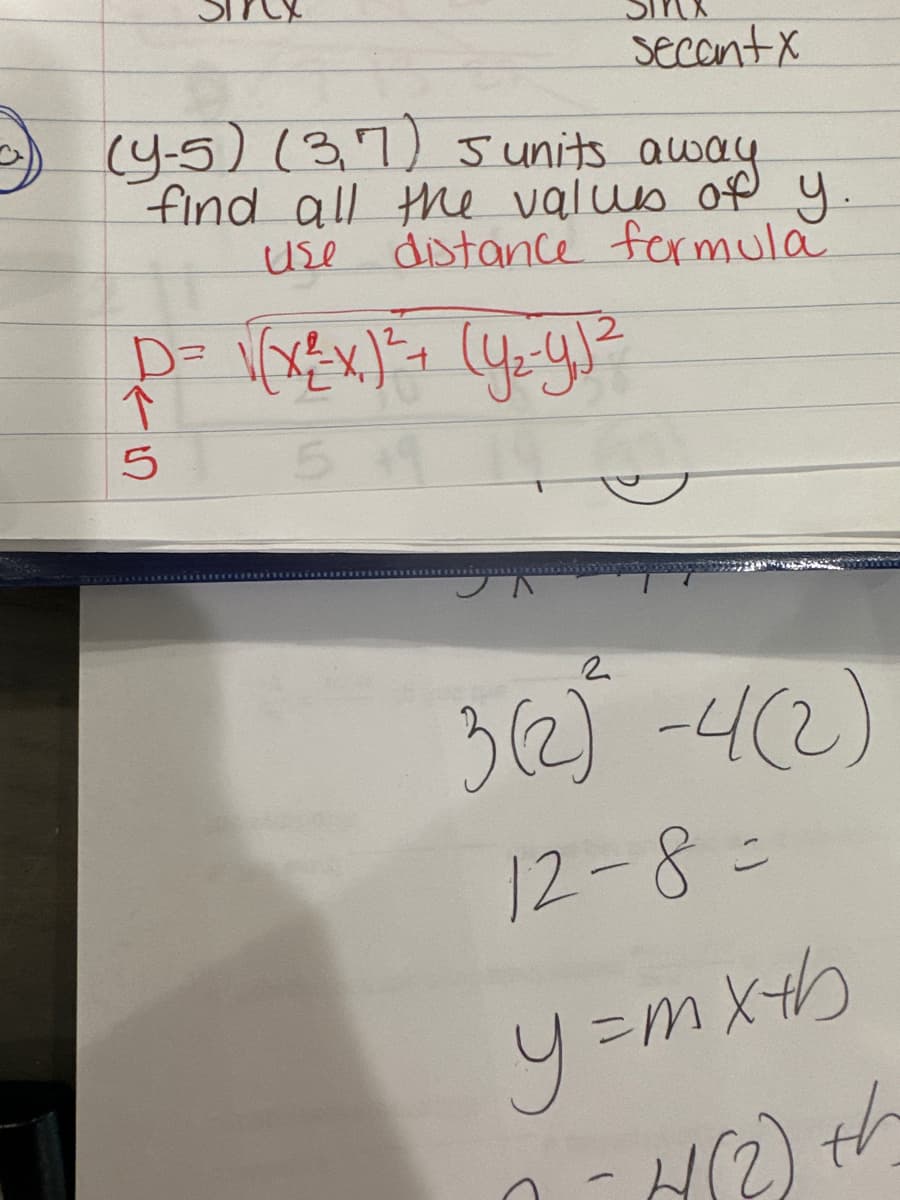 sinx sinx
secantx
(y-5) (3,7) 5 units away
find all the values of y.
use distance formula
D= √(x₂²-x₁)²+ (y₂-y₁)²
↑
5
3(2)² -4(2)
12-8=
y=mx+b
-4(2) +b